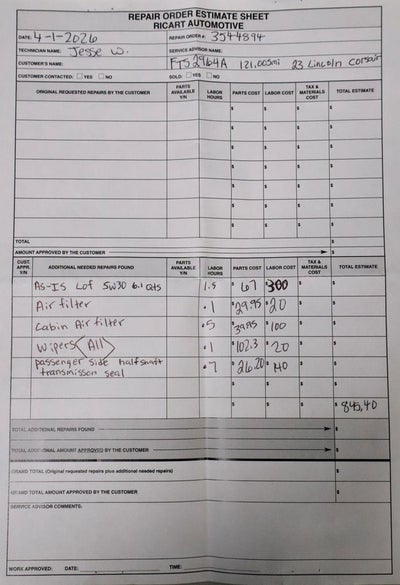 REPAIR ORDER ESTIMATE SHEET
RICART AUTOMOTIVE
DATE: 4-1-2026 REPAIR ORDER #: 3544894
TECHNICIAN NAME: Jesse W. SERVICE ADVISOR NAME:
CUSTOMER'S NAME: FTS2964A 121,005mi 23 Lincoln Corsair
CUSTOMER CONTACTED: YES NO SOLD: YES NO
ORIGINAL REQUESTED REPAIRS BY THE CUSTOMER PARTS AVAILABLE Y/N LABOR HOURS PARTS COST LABOR COST TAX & MATERIALS COST TOTAL ESTIMATE
$ $ $ $
$ $ $ $
$ $ $ $
$ $ $ $
$ $ $ $
$ $ $ $
$ $ $ $
TOTAL $
AMOUNT APPROVED BY THE CUSTOMER $
CUST. APPR. Y/N ADDITIONAL NEEDED REPAIRS FOUND PARTS AVAILABLE Y/N LABOR HOURS PARTS COST LABOR COST TAX & MATERIALS COST TOTAL ESTIMATE
As-Is Lof 5w30 6.1 Qts 1.5 $ 67 $ 300 $ $
Air filter .1 $ 29.95 $ 20 $ $
Cabin Air filter .5 $ 39.95 $ 100 $ $
Wipers All .1 $ 102.3 $ 20 $ $
passenger side halfshaft
transmisson seal .7 $ 26.20 $ 140 $ $
$ $ $ $
$ $ $ $ 845,40
TOTAL ADDITIONAL REPAIRS FOUND $
TOTAL ADDITIONAL AMOUNT APPROVED BY THE CUSTOMER $
GRAND TOTAL (Original requested repairs plus additional needed repairs) $
GRAND TOTAL AMOUNT APPROVED BY THE CUSTOMER $
SERVICE ADVISOR COMMENTS:
WORK APPROVED: DATE: TIME: